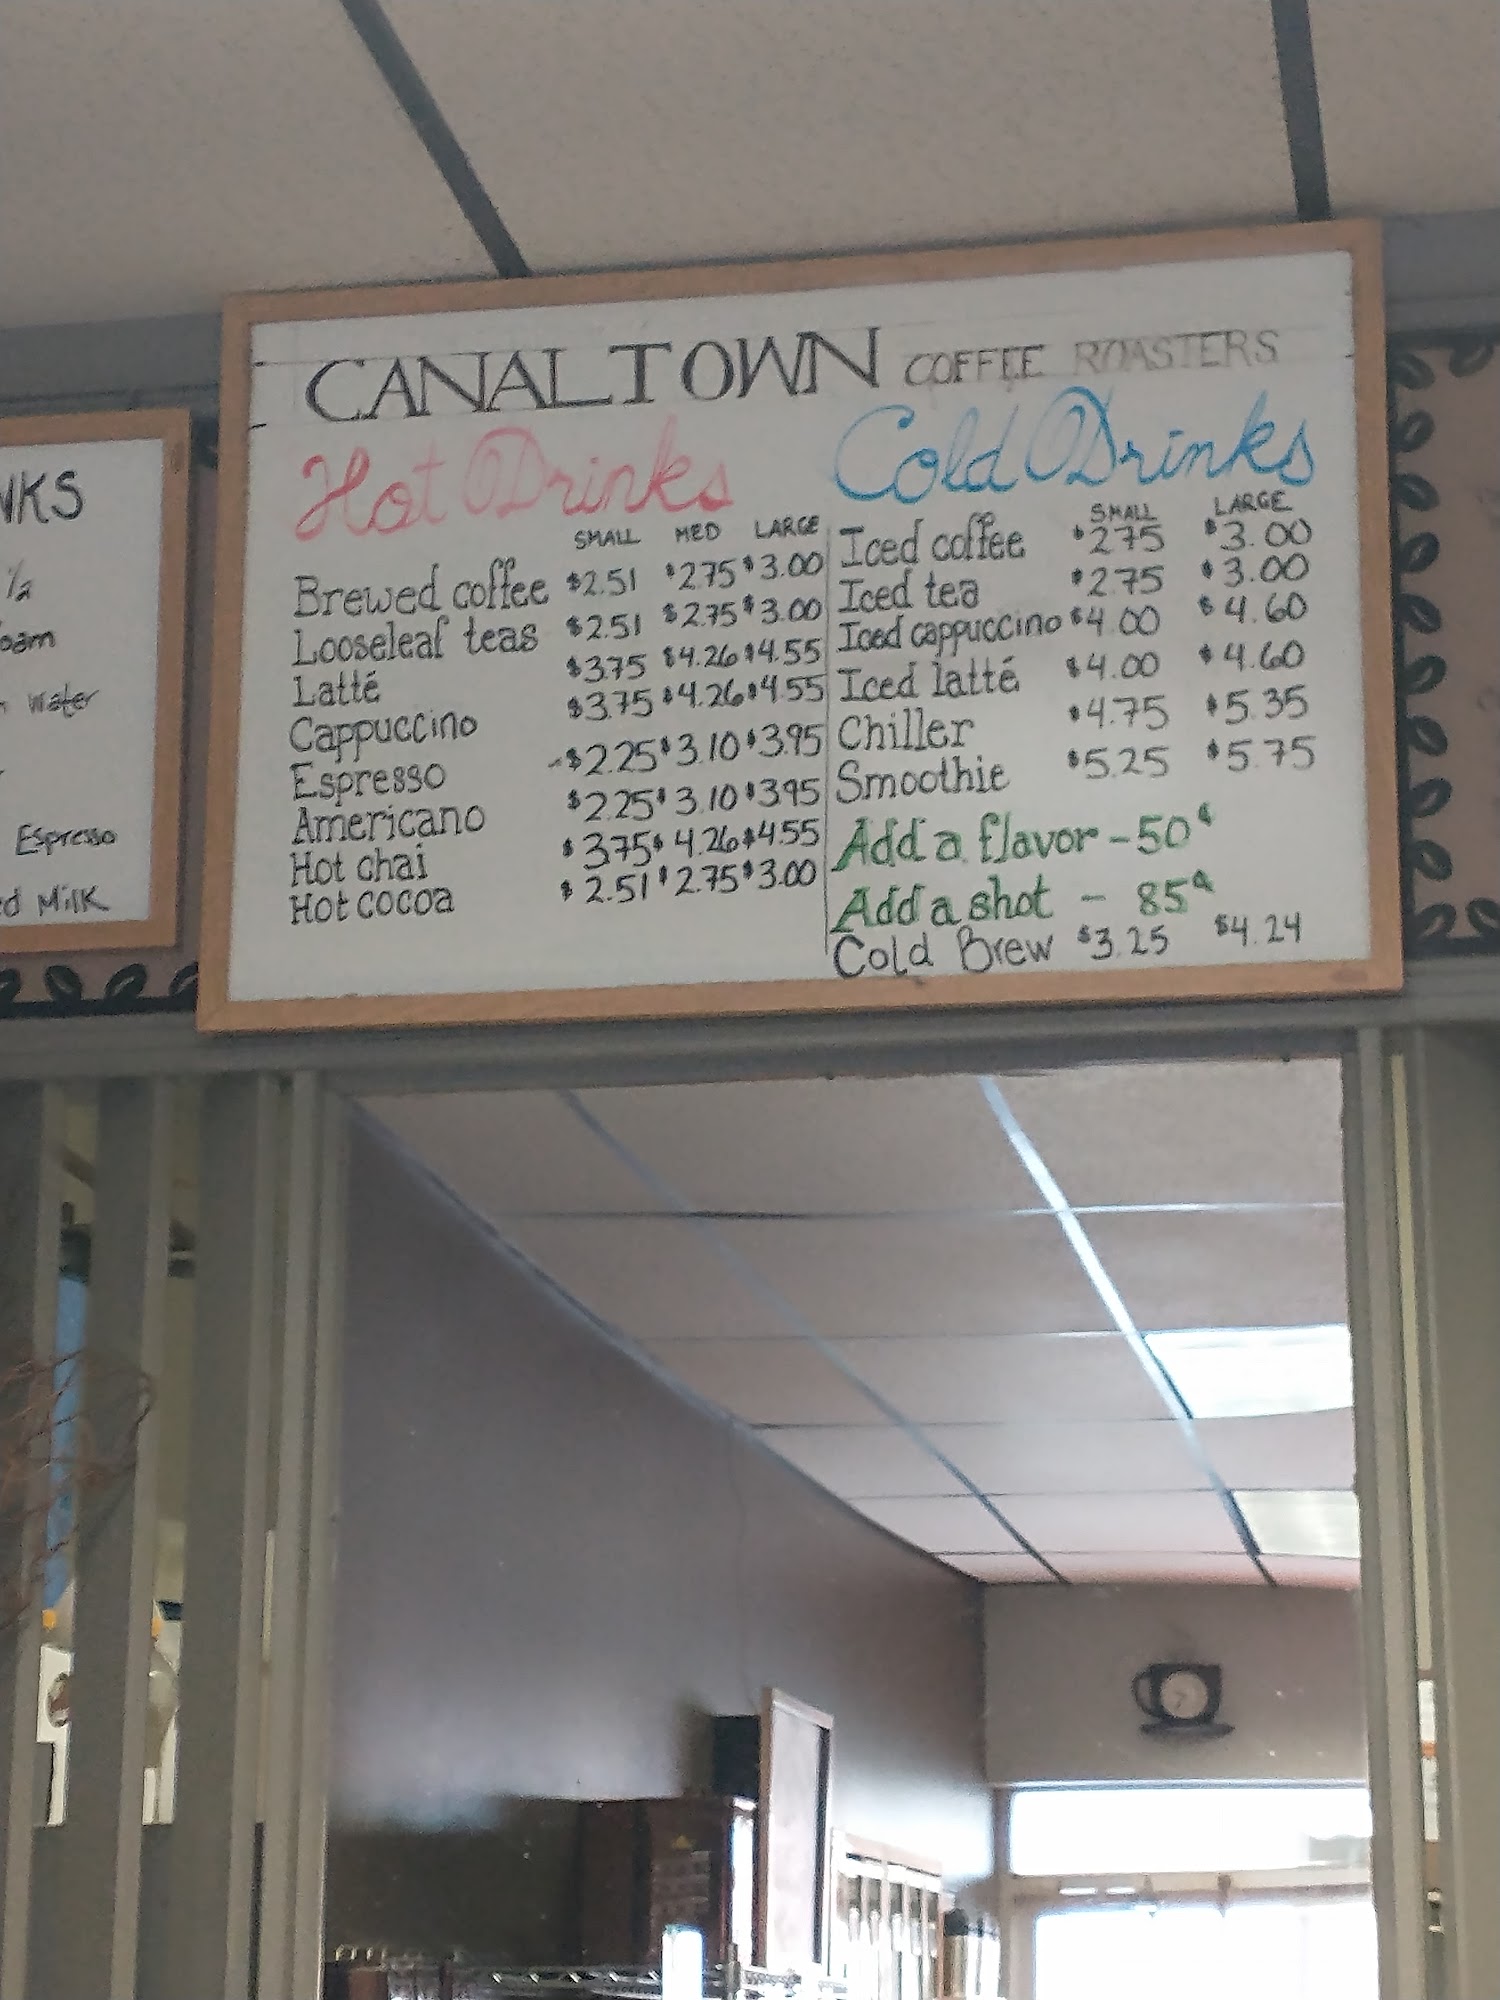 NKS
1/2
oam
water
Espresso
d Milk
CANALTOWN COFFEE ROASTERS
Hot Drinks
SMALL MED LARGE
Brewed coffee $2.51 $2.75 $3.00
Looseleaf teas $2.51 $2.75 $3.00
Latté $3.75 $4.26 $4.55
Cappuccino $3.75 $4.26 $4.55
Espresso -$2.25 $3.10 $3.95
Americano $2.25 $3.10 $3.95
Hot chai $3.75 $4.26 $4.55
Hot cocoa $2.51 $2.75 $3.00
Cold Drinks
SMALL LARGE
Iced coffee $2.75 $3.00
Iced tea $2.75 $3.00
Iced cappuccino $4.00 $4.60
Iced latté $4.00 $4.60
Chiller $4.75 $5.35
Smoothie $5.25 $5.75
Add a flavor - 50¢
Add a shot - 85¢
Cold Brew $3.25 $4.24